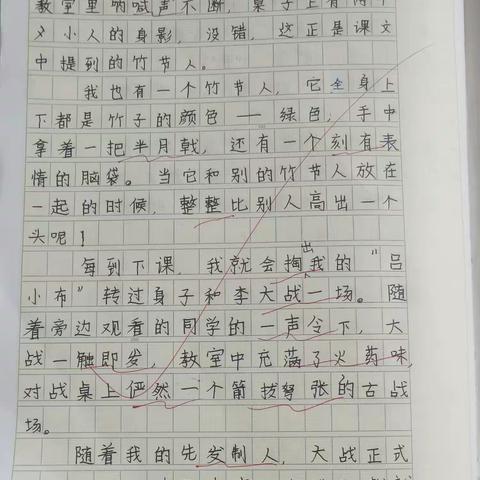 教室里呐喊声不断，桌子上有两个
小人的身影，没错，这正是课文
中提到的竹节人。
我也有一个竹节人，它全身上
下都是竹子的颜色——绿色，手中
拿着一把半月戟，还有一个刻有表
情的脑袋。当它和别的竹节人放在
一起的时候，整整比别人高出一个
头呢！
每到下课，我就会掏出我的“吕
小布”转过身子和李大战一场。随
着旁边观看的同学的一声令下，大
战一触即发，教室中充满了火药味，
对战桌上俨然一个箭拔弩张的古战
场。
随着我的先发制人，大战正式